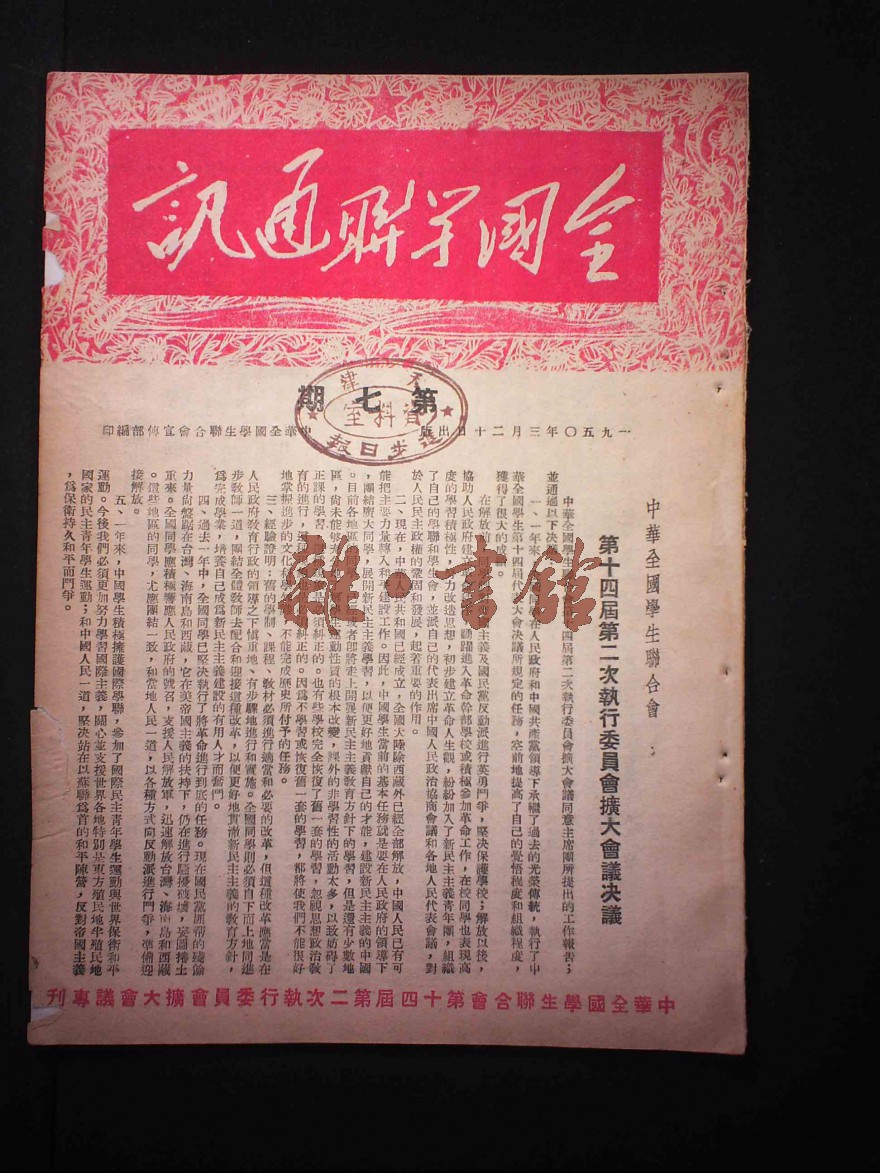 全國学聯通訊
第七期
天津
資料室
進步日報
一九五〇年三月二十日出版
中華全國學生聯合會宣傳部編印
中華全國學生聯合會
第十四屆第二次執行委員會擴大會議决議
中華全國學生 四屆第二次執行委員會擴大會議同意主席團所提出的工作報告；
並通過以下决
一、一年來， 學 在人民政府和中國共產黨領導下承繼了過去的光榮傳統，執行了中
華全國學生第十四屆代表大會决議所規定的任務，空前地提高了自己的覺悟程度和組織程度，
獲得了很大的成
在解放前 同學 主義及國民黨反動派進行英勇鬥爭，堅决保護學校；解放以後，
協助人民政府建 踴躍進入革命幹部學校或積極參加革命工作，在校同學也表現高
度的學習積極性， 力改造思想，初步建立革命人生觀，紛紛加入了新民主主義青年團，組織
了自己的學聯和學生會，並派自己的代表出席中國人民政治協商會議和各地人民代表會議，對
於人民民主政權的鞏固和發展，起着重要的作用。
二、現在，中華人民共和國已經成立，全國大陸除西藏外已經全部解放，中國人民已有可
能把主要力量轉入和 建設工作。因此，中國學生當前的基本任務就是要在人民政府的領導下
，團結廣大同學，展開新民主主義學習，以便更好地貢獻自己的才能，建設新民主主義的中國
。目前各地區 已 或者即將走上開展新民主主義教育方針下的學習，但是還有少數地
區，尚未能够充 生運動性質的根本改變，課外的非學習性的活動太多，以致妨碍了
正課的學習， 須糾正的。也有些學校完全恢復了舊一套的學習，忽視思想政治教
育的進行，這種 糾正的。因爲不學習或恢復舊一套的學習，都將使我們不能很好
地掌握進步的文化科學 不能完成歷史所付予的任務。
三、經驗證明：舊的學制、課程、教材必須進行適當和必要的改革，但這種改革應當是在
人民政府教育行政的領導之下愼重地、有步驟地進行和實施。全國同學則必須自下而上地同進
步教師一道，團結全體教師去配合和迎接這種改革，以便更好地貫澈新民主主義的教育方針，
爲完成學業，培養自己成爲新民主主義建設的有用人才而奮鬥。
四、過去一年中，全國同學已堅决執行了將革命進行到底的任務。現在國民黨匪幫的殘餘
力量尚盤踞在台灣、海南島和西藏，它在美帝國主義的扶持下，仍在進行騷擾破壞，妄圖捲土
重來。全國同學應積極響應人民政府的號召，支援人民解放軍，迅速解放台灣、海南島和西藏
。這些地區的同學，尤應團結一致，和當地人民一道，以各種方式向反動派進行鬥爭，準備迎
接解放。
五、一年來，中國學生積極擁護國際學聯，參加了國際民主青年學生運動與世界保衛和平
運動。今後我們必須更加努力學習國際主義，關心並支援世界各地特別是東方殖民地半殖民地
國家的民主青年學生運動；和中國人民一道，堅决站在以蘇聯爲首的和平陣營，反對帝國主義
，爲保衛持久和平而鬥爭。
中華全國學生聯合會第十四屆第二次執行委員會擴大會議專刊
雜·書館